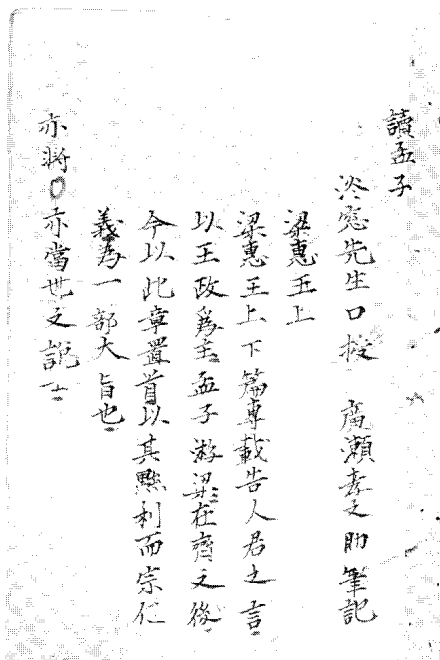 讀孟子
淡窓先生口授 廣瀬孝之助筆記
梁惠王上
梁惠王上下篇專載告人君之言
以王政爲主孟子游梁在齊之後
今以此章置首以其黜利而宗仁
義爲一部大旨也
亦將〇亦當世之說